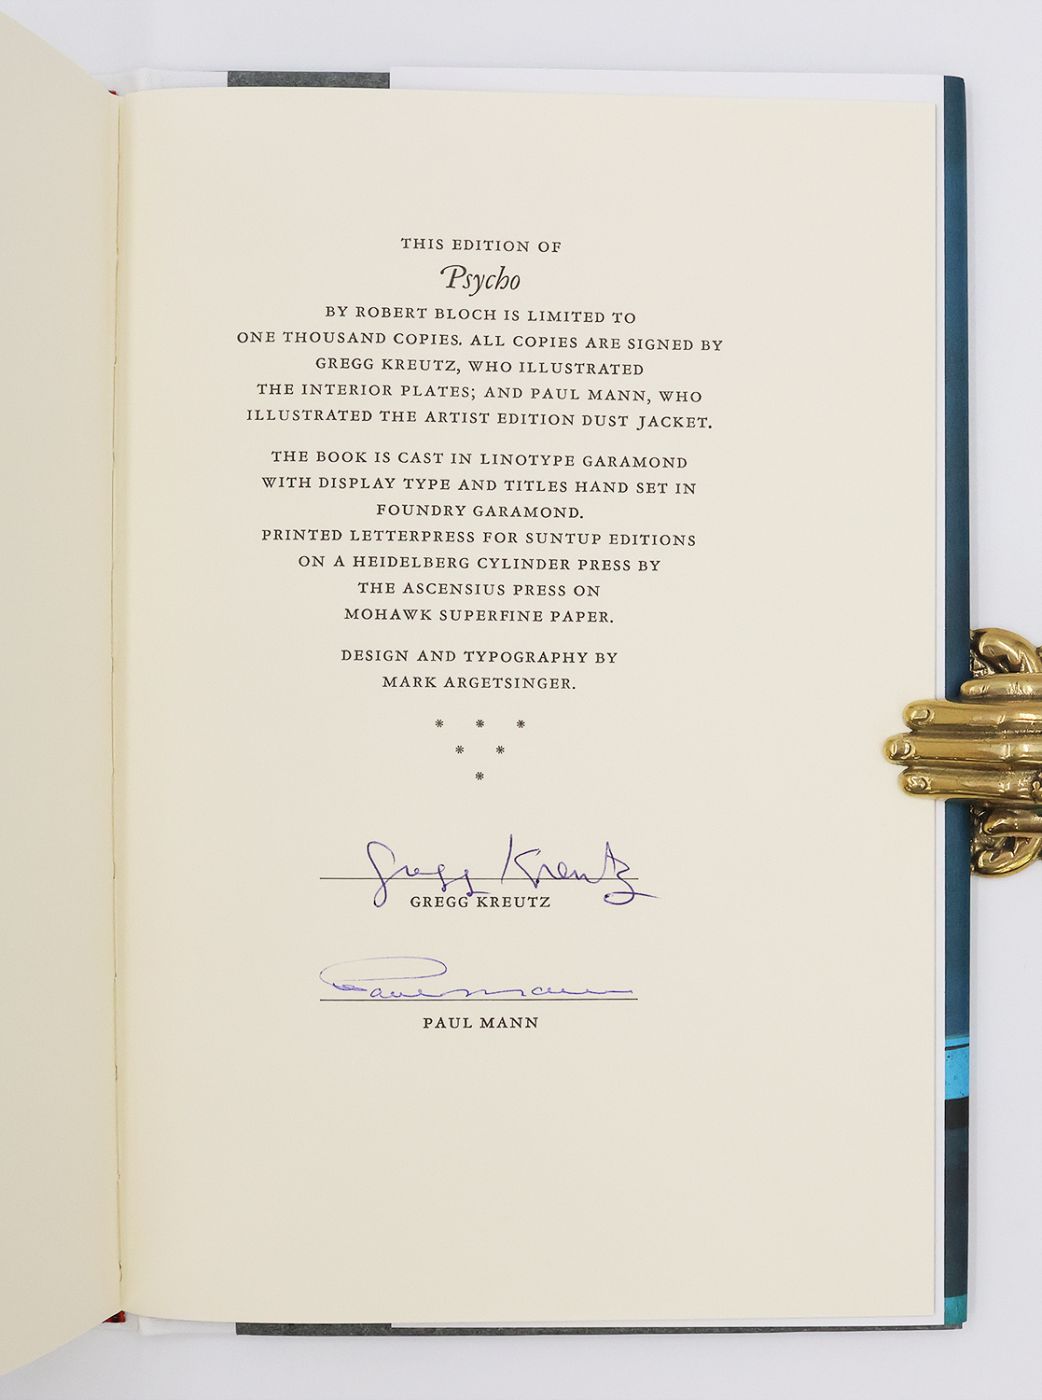 THIS EDITION OF
Psycho
BY ROBERT BLOCH IS LIMITED TO
ONE THOUSAND COPIES. ALL COPIES ARE SIGNED BY
GREGG KREUTZ, WHO ILLUSTRATED
THE INTERIOR PLATES; AND PAUL MANN, WHO
ILLUSTRATED THE ARTIST EDITION DUST JACKET.
THE BOOK IS CAST IN LINOTYPE GARAMOND
WITH DISPLAY TYPE AND TITLES HAND SET IN
FOUNDRY GARAMOND.
PRINTED LETTERPRESS FOR SUNTUP EDITIONS
ON A HEIDELBERG CYLINDER PRESS BY
THE ASCENSIUS PRESS ON
MOHAWK SUPERFINE PAPER.
DESIGN AND TYPOGRAPHY BY
MARK ARGETSINGER.
* * *
* *
*
Gregg Kreutz
GREGG KREUTZ
Paul Mann
PAUL MANN